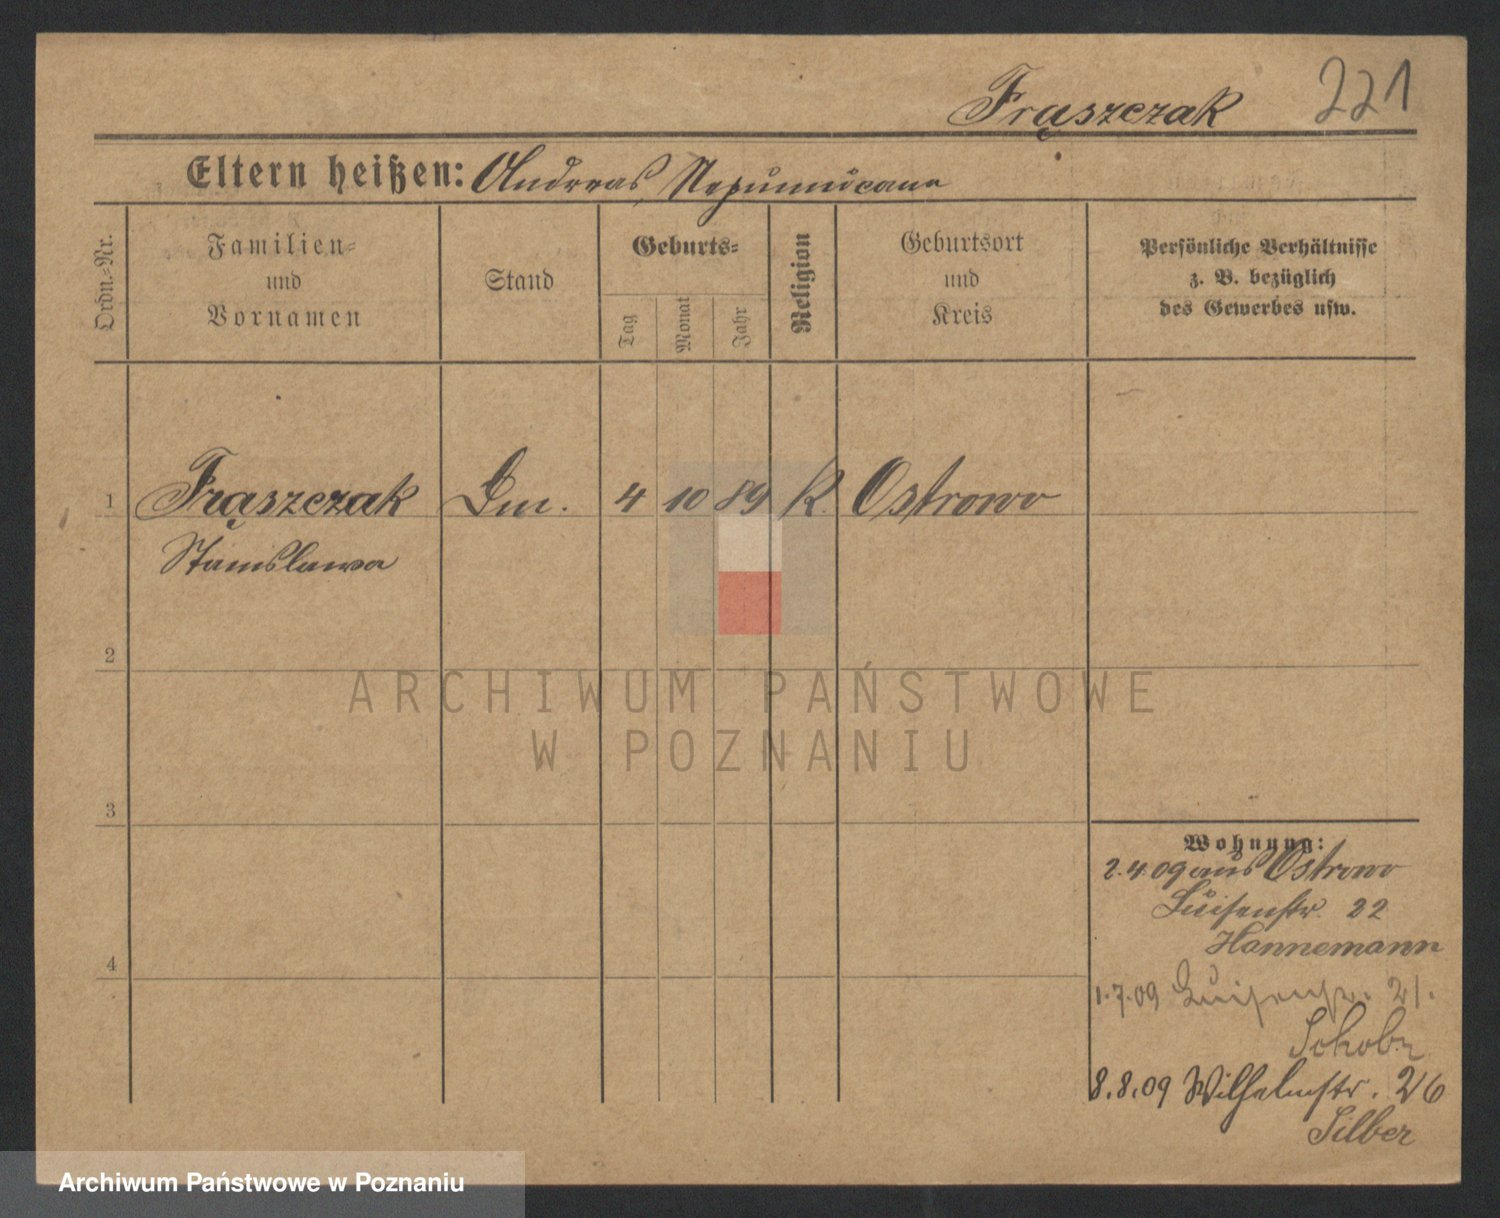 Frąszczak 221
Eltern heißen: Andreas, Nepumucana
Ordn.-Nr.
Familien-
und
Vornamen
Stand
Geburts-
Tag
Monat
Jahr
Religion
Geburtsort
und
Kreis
Persönliche Verhältnisse
z. B. bezüglich
des Gewerbes usw.
1 Frąszczak 4 10 89 K. Ostrowo
Stanislawa
2
3
4
Wohnung:
2.4.09 aus Ostrowo
Luisenstr. 22
Hannemann
1.7.09 Luisenstr. 21.
8.8.09 Wilhelmstr. 26
Silber
ARCHIWUM PAŃSTWOWE
W POZNANIU
Archiwum Państwowe w Poznaniu